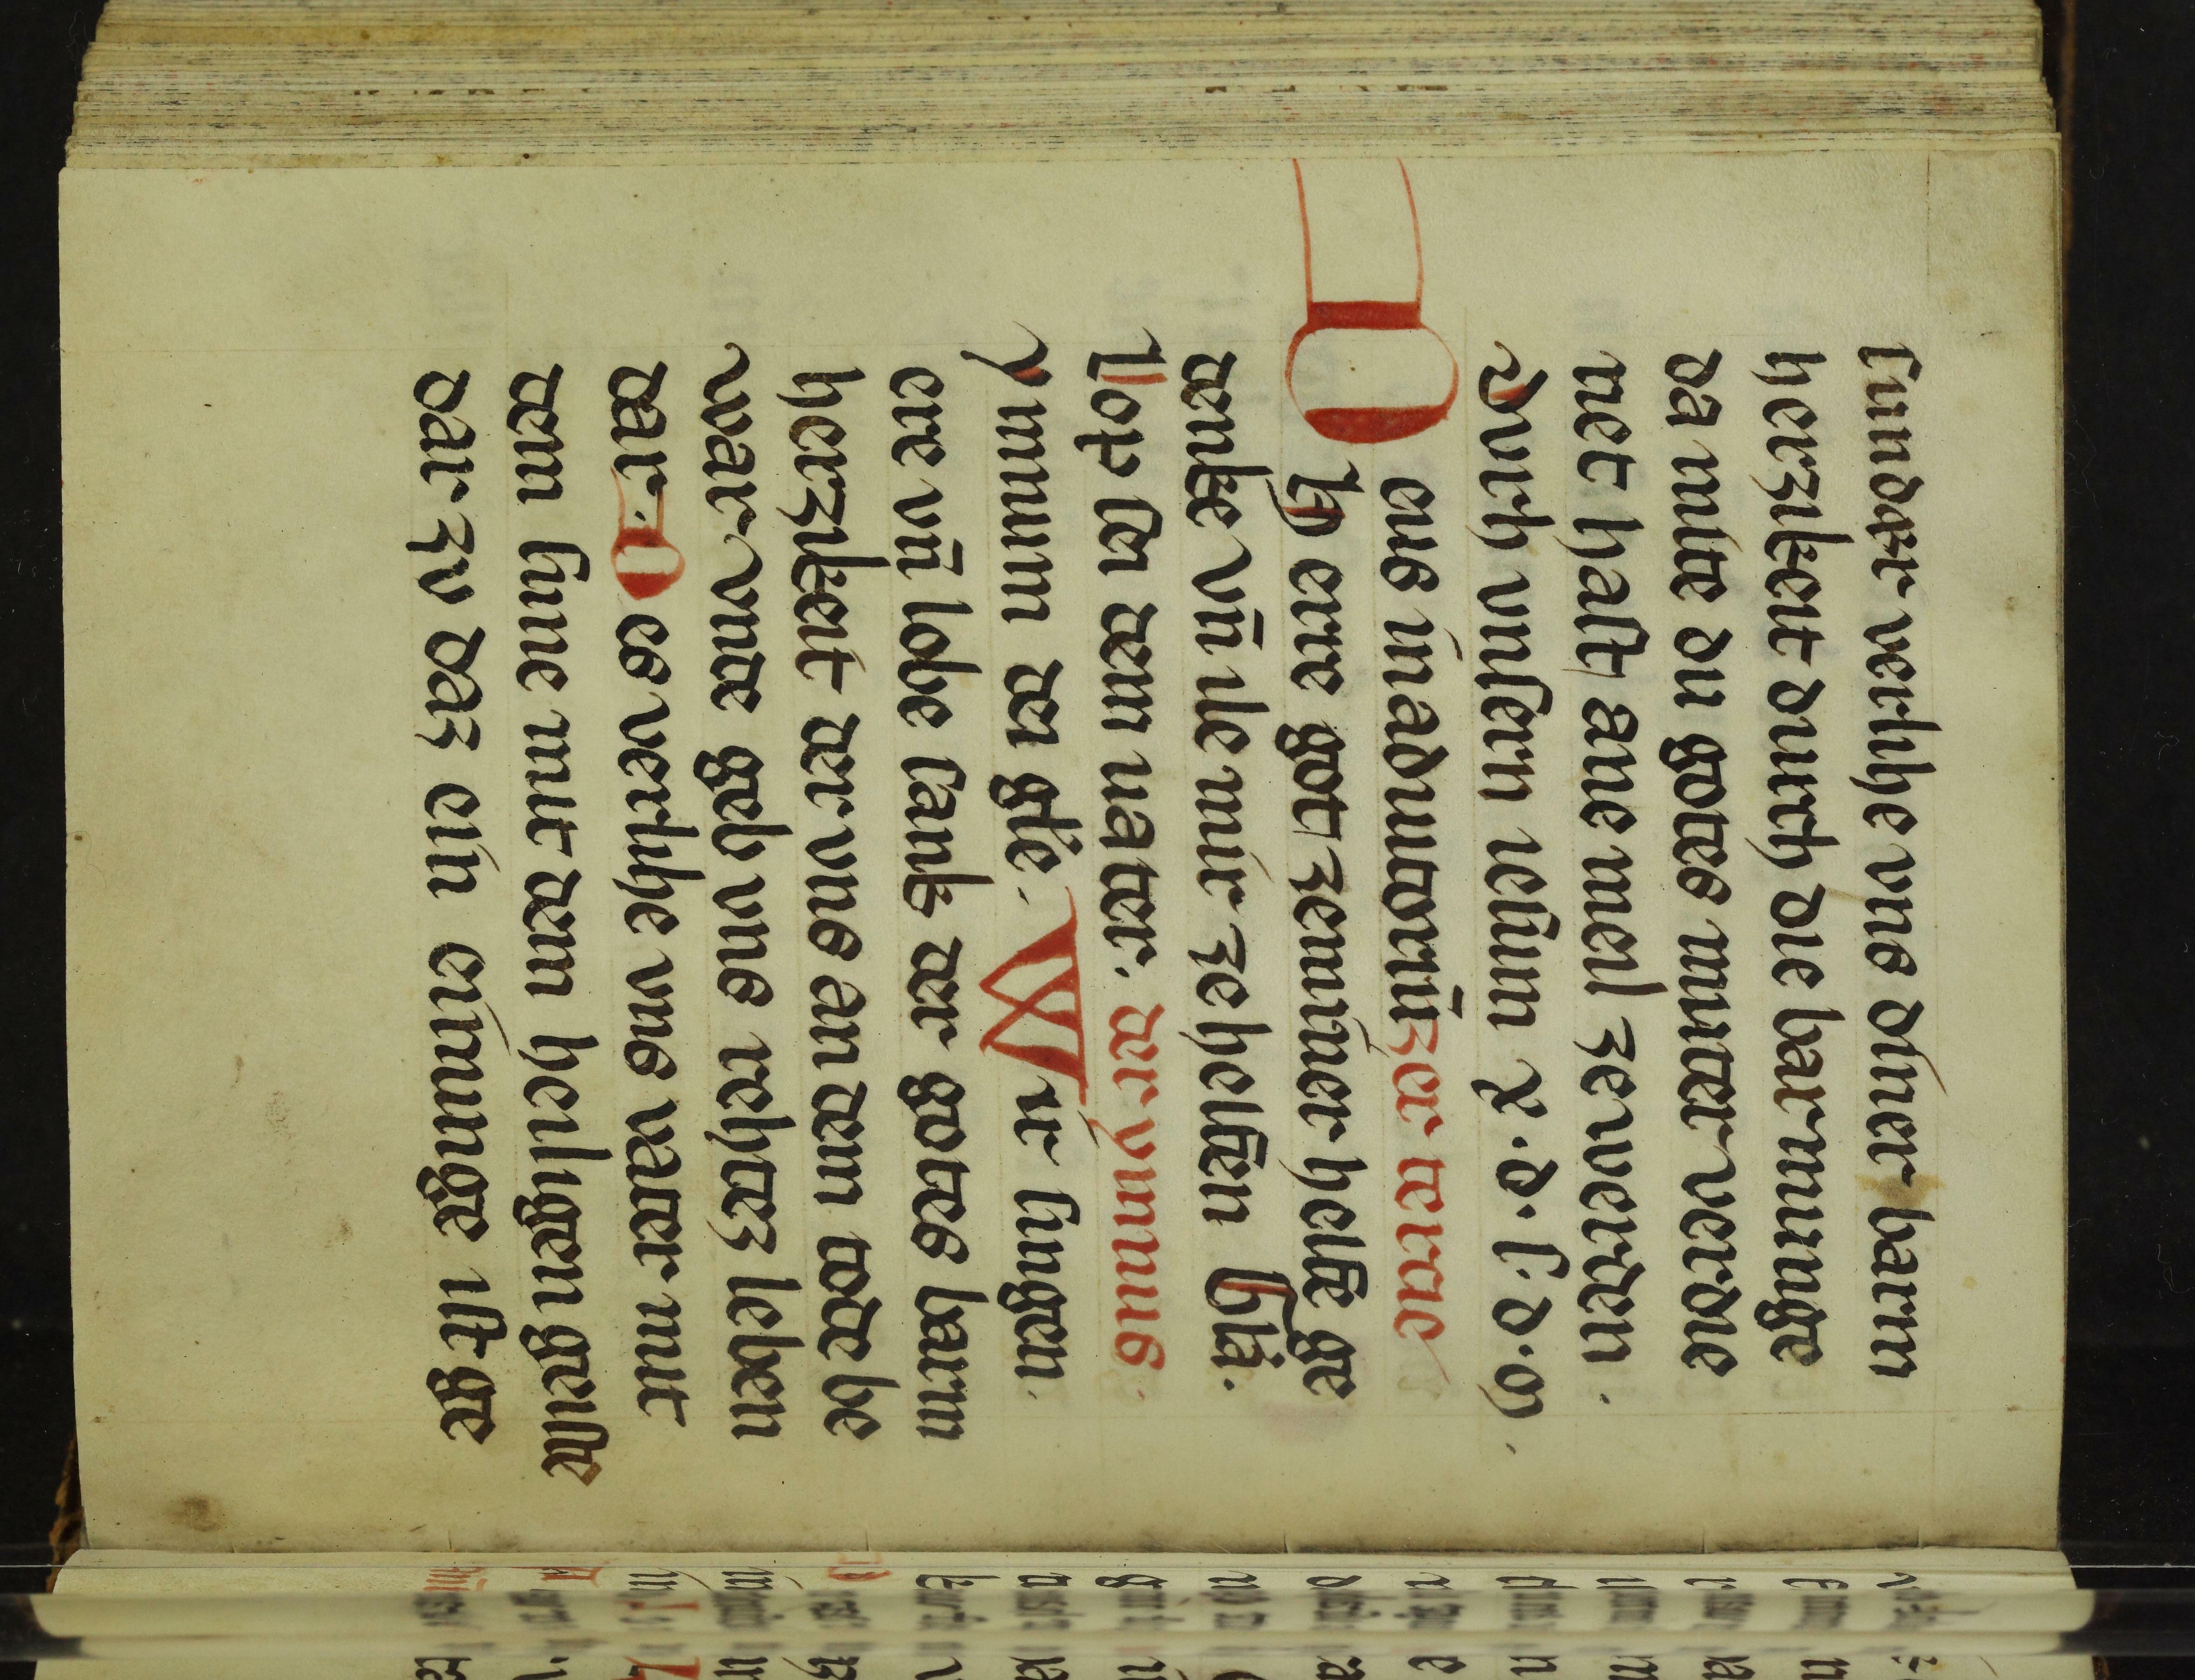 sundær verlihe vns diner barm
herzikeit durch die barmunge
da mite du gotes muter verdie
net hast ane meil zewerden.
Durch vnsern iesum x.d.s.d.w.
eus inadiutoriū zer tercie
Herre got zeminner helfe ge
denke vn̄ ile mir zehelfen Glīa.
Lop sei dem uater. der ymnus.
Ymnum dei gl'ie. Wir singen
ere vn̄ lobe sank der gotes barm
herzikeit der vns an dem tode be
warn vnde gab vns rehtez leben
dar. O es verlihe vns vater mit
dem sune mit dem heiligen geiste
dar zv daz ein einunge ist ge